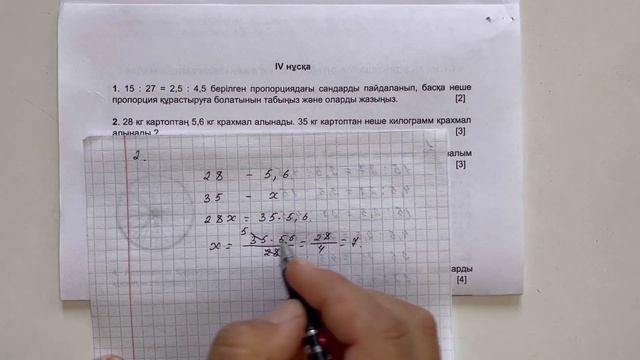 IV нұсқа
1. 15 : 27 = 2,5 : 4,5 берілген пропорциядағы сандарды пайдаланып, басқа неше
пропорция құрастыруға болатынын табыңыз және оларды жазыңыз. [2]
2. 28 кг картоптаң 5,6 кг крахмал алынады. 35 кг картоптан неше килограмм крахмал
алынады ? [3]
[3]
2.
28 - 5,6
35 - x
28x = 35·5,6.
x = 35·5,6/28 = 28/4 = 7.
[4]